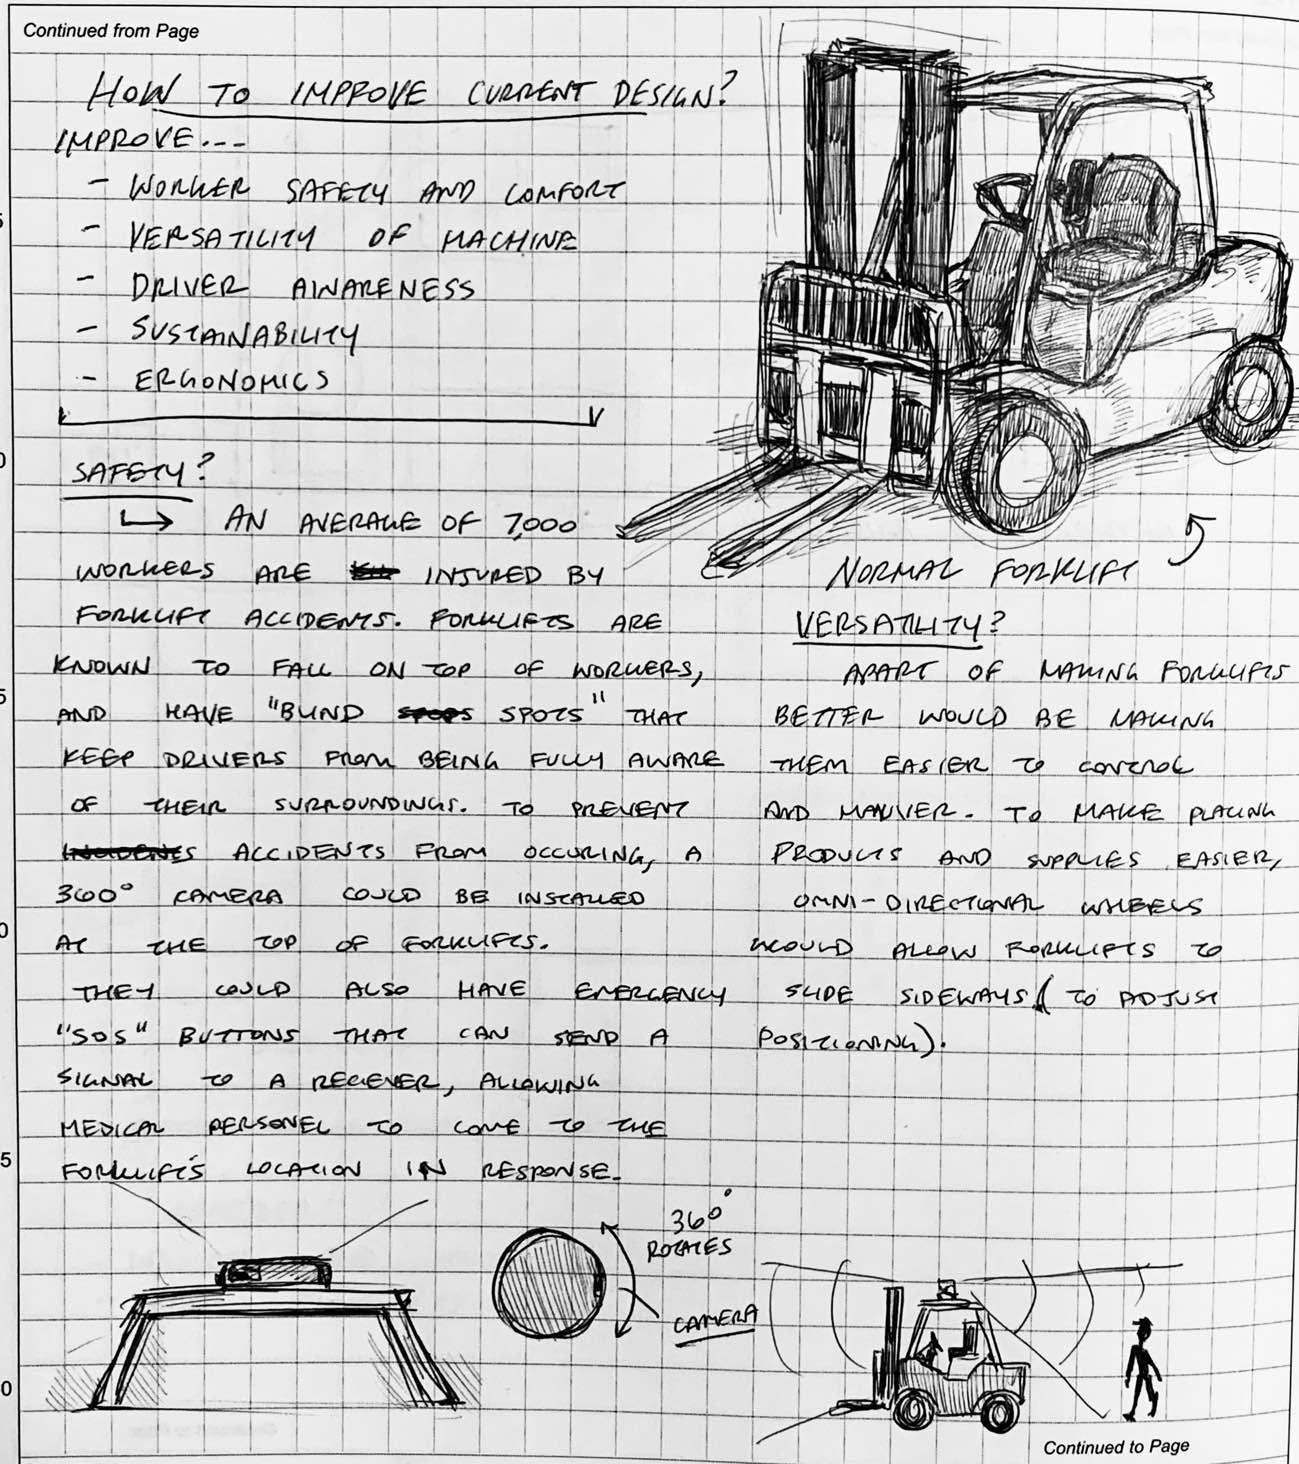 Continued from Page
HOW TO IMPROVE CURRENT DESIGN?
IMPROVE...
- WORKER SAFETY AND COMFORT
- VERSATILITY OF MACHINE
- DRIVER AWARENESS
- SUSTAINABILITY
- ERGONOMICS
SAFETY?
↳ AN AVERAGE OF 7,000
WORKERS ARE INJURED BY
FORKLIFT ACCIDENTS. FORKLIFTS ARE
KNOWN TO FALL ON TOP OF WORKERS,
AND HAVE "BLIND SPOTS" THAT
KEEP DRIVERS FROM BEING FULLY AWARE
OF THEIR SURROUNDINGS. TO PREVENT
ACCIDENTS FROM OCCURING, A
360° CAMERA COULD BE INSTALLED
AT THE TOP OF FORKLIFTS.
THEY COULD ALSO HAVE EMERGENCY
"SOS" BUTTONS THAT CAN SEND A
SIGNAL TO A RECIEVER, ALLOWING
MEDICAL PERSONEL TO COME TO THE
FORKLIFT'S LOCATION IN RESPONSE.
NORMAL FORKLIFT
VERSATILITY?
APART OF MAKING FORKLIFTS
BETTER WOULD BE MAKING
THEM EASIER TO CONTROL
AND MANUVER. TO MAKE PLACING
PRODUCTS AND SUPPLIES EASIER,
OMNI-DIRECTIONAL WHEELS
WOULD ALLOW FORKLIFTS TO
SLIDE SIDEWAYS (TO ADJUST
POSITIONING).
360°
ROTATES
CAMERA
Continued to Page